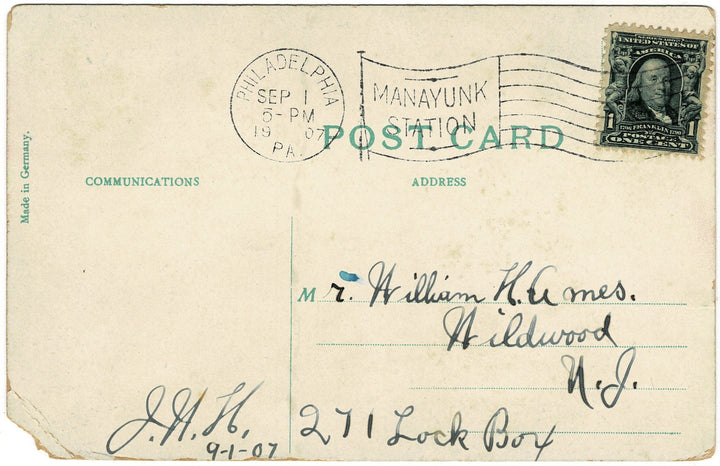 PHILADELPHIA
SEP 1
5-PM
19 07
PA.
MANAYUNK
STATION
SERIES 1902
UNITED STATES OF
AMERICA
1 1
1706 FRANKLIN 1790
POSTAGE
ONE CENT
POST CARD
Made in Germany.
COMMUNICATIONS
ADDRESS
Mr. William H. Ames.
Wildwood
N. J.
271 Lock Box
J. N. H.
9-1-07